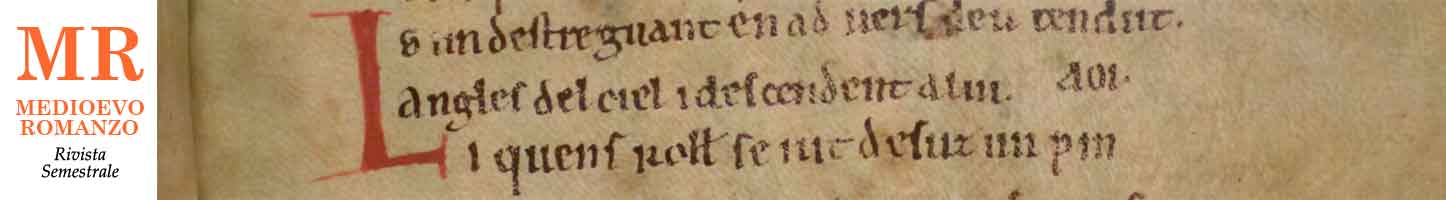 MR
MEDIOEVO
ROMANZO
Rivista
Semestrale
Sun destre guant en ad uers deu tendut.
Angles del ciel i descendent a lui. AOI.
Li quens Roll̃ se iut desuz un pin